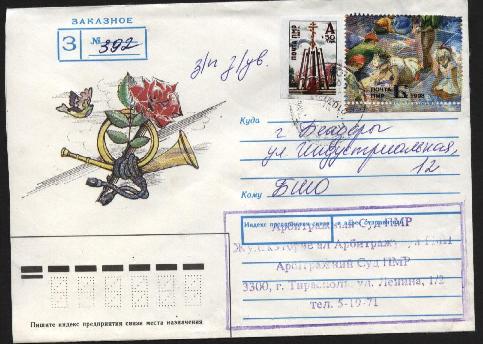 ЗАКАЗНОЕ
З № 392
з/п з/ув.
ПОЧТА ПМР
А
ПОЧТА ПМР Б 1998
Куда г. Бендеры
ул. Индустриальная,
12
Кому БШО
Индекс предприятия связи и адрес отправителя
Арбитражный Суд ПМР
Арбитражу
Арбитражий Суд ПМР
3300, г. Тирасполь, ул. Ленина, 1/2
тел. 5-19-71
Пишите индекс предприятия связи места назначения